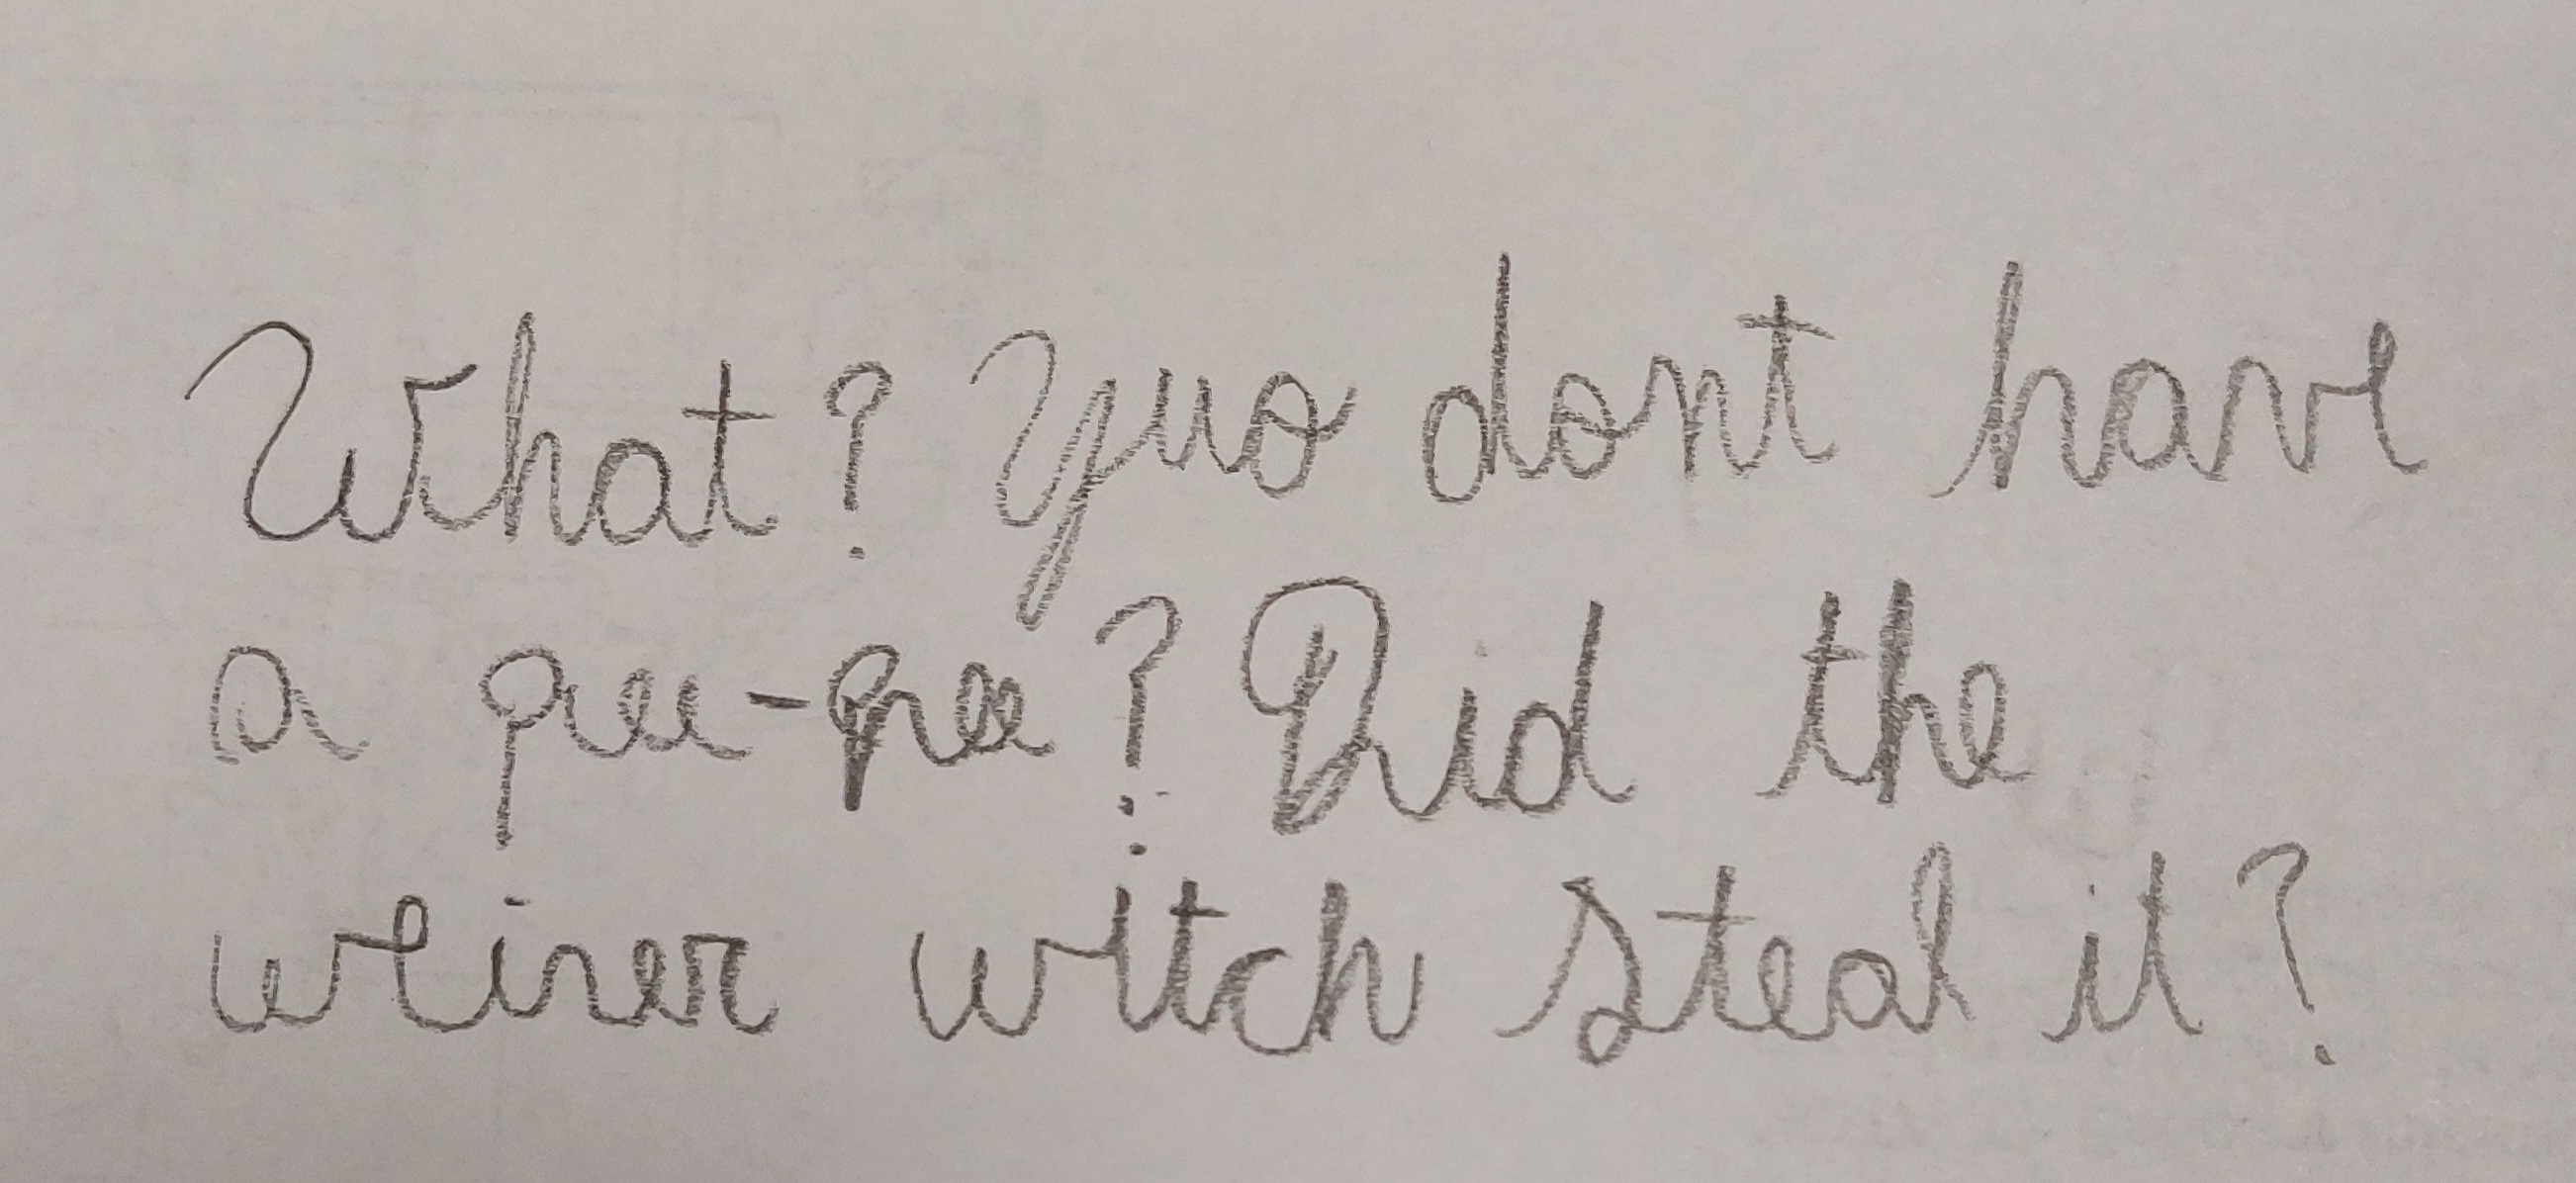 What? Yuo dont have
a pee-pee? Did the
weiner witch steal it?